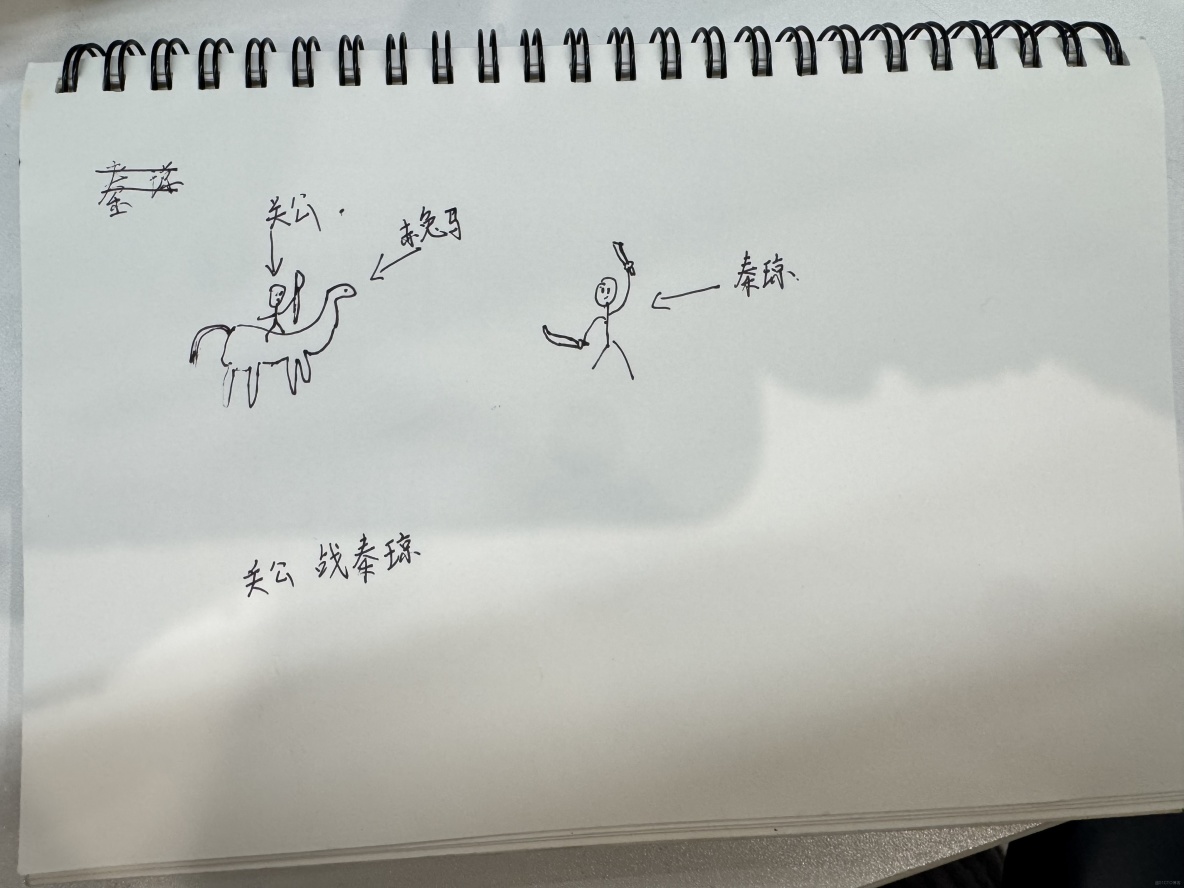 关公.
赤兔马
秦琼.
关公 战秦琼